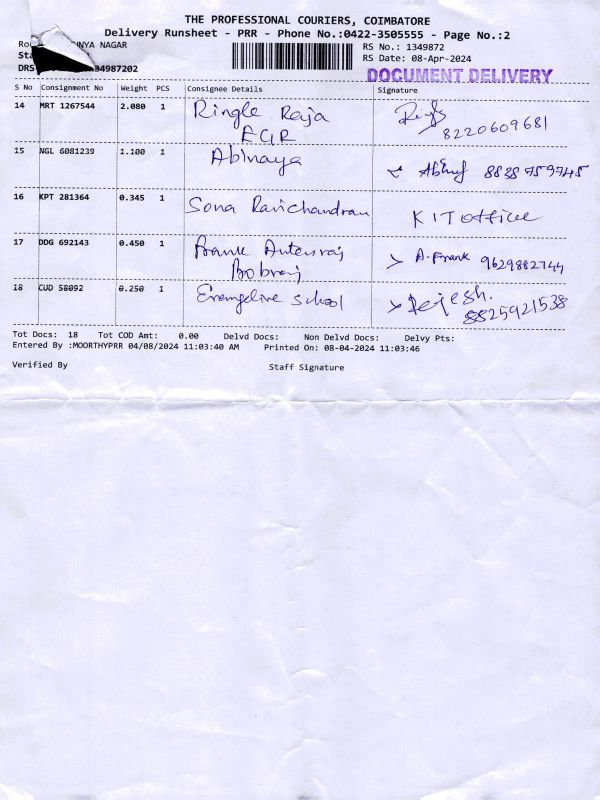 THE PROFESSIONAL COURIERS, COIMBATORE
Delivery Runsheet - PRR - Phone No.:0422-3505555 - Page No.:2
NYA NAGAR
RS No.: 1349872
RS Date: 08-Apr-2024
DRS 84987202
DOCUMENT DELIVERY
S No Consignment No Weight PCS Consignee Details Signature
14 MRT 1267544 2.080 1 Ringle Raja
8220609681
15 NGL 6081239 1.100 1 Abinaya 8838759745
16 KPT 281364 0.345 1 Sona Ravichandran KIT office
17 DDG 692143 0.450 1 A. Frank 9629882744
18 CUD 58092 0.250 1 Evangeline School Rejesh.
8825921538
Tot Docs: 18 Tot COD Amt: 0.00 Delvd Docs: Non Delvd Docs: Delvy Pts:
Entered By :MOORTHYPRR 04/08/2024 11:03:40 AM Printed On: 08-04-2024 11:03:46
Verified By Staff Signature